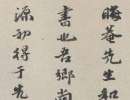 晦菴先生和
書也吾鄉尚
源初得于先